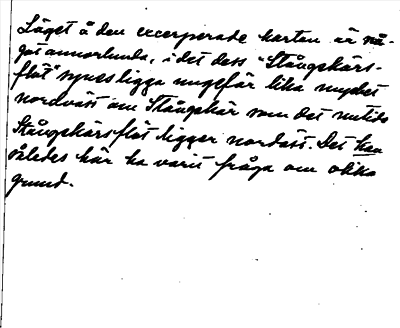 Läget å den excerperade kartan är nå-
got annorlunda, i det dess "Stångskärs-
flöt" synes ligga ungefär lika mycket
nordväst om Stångskär som det nutida
Stångskärsflöt ligger nordost. Det kan
således här ha varit fråga om olika
grund.